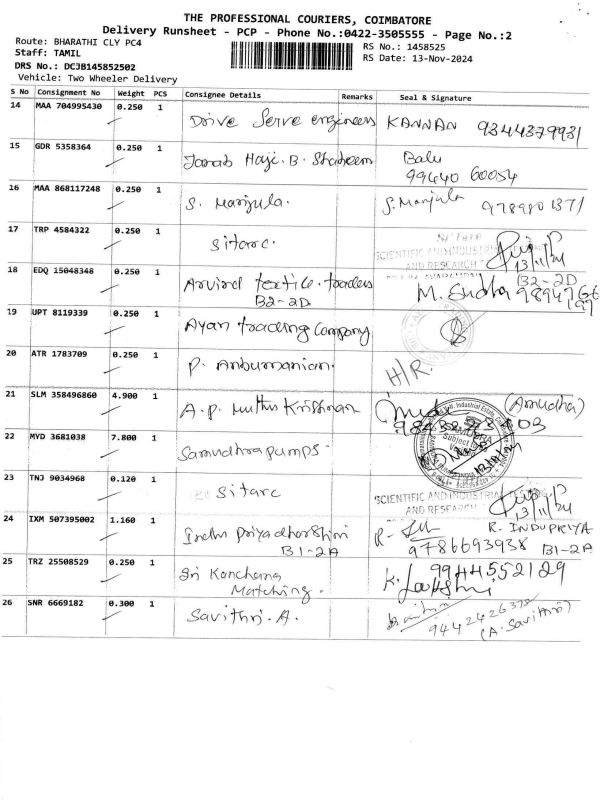 THE PROFESSIONAL COURIERS, COIMBATORE
Delivery Runsheet - PCP - Phone No.:0422-3505555 - Page No.:2
Route: BHARATHI CLY PC4
RS No.: 1458525
Staff: TAMIL
RS Date: 13-Nov-2024
DRS No.: DCJB145852502
Vehicle: Two Wheeler Delivery
S No Consignment No Weight PCS Consignee Details Remarks Seal & Signature
14 MAA 704995430 0.250 1 Drive Serve engineers KANNAN 9344379931
15 GDR 5358364 0.250 1 Haji. B. Shaheem Balu
99440 60054
16 MAA 868117248 0.250 1 S. Manjula. S. Manjula
17 TRP 4584322 0.250 1 Sitarc.
SCIENTIFIC AND INDUSTRIAL
AND RESEARCH
13/11/24
18 EDQ 15048348 0.250 1 Arvind textile traders B2-2D
B2-2D M. Sudha
19 UPT 8119339 0.250 1 Ayan trading Company
20 ATR 1783709 0.250 1 P. Anbumanian. H/R.
21 SLM 358496860 4.900 1 A. P. Muthu Krishnan (Amudha)
22 MYD 3681038 7.800 1 Samudhra pumps.
23 TNJ 9034968 0.120 1 Sitarc
SCIENTIFIC AND INDUSTRIAL TESTING
AND RESEARCH
13/11/24
24 IXM 507395002 1.160 1 Indhu Priyadharshini R. INDUPRIYA
B1-2A 9786693938 B1-2A
25 TRZ 25508529 0.250 1 Sri Kanchana 9944552129
Matching. K.
26 SNR 6669182 0.300 1 Savithri. A. 9442426372
(A. Savithri)